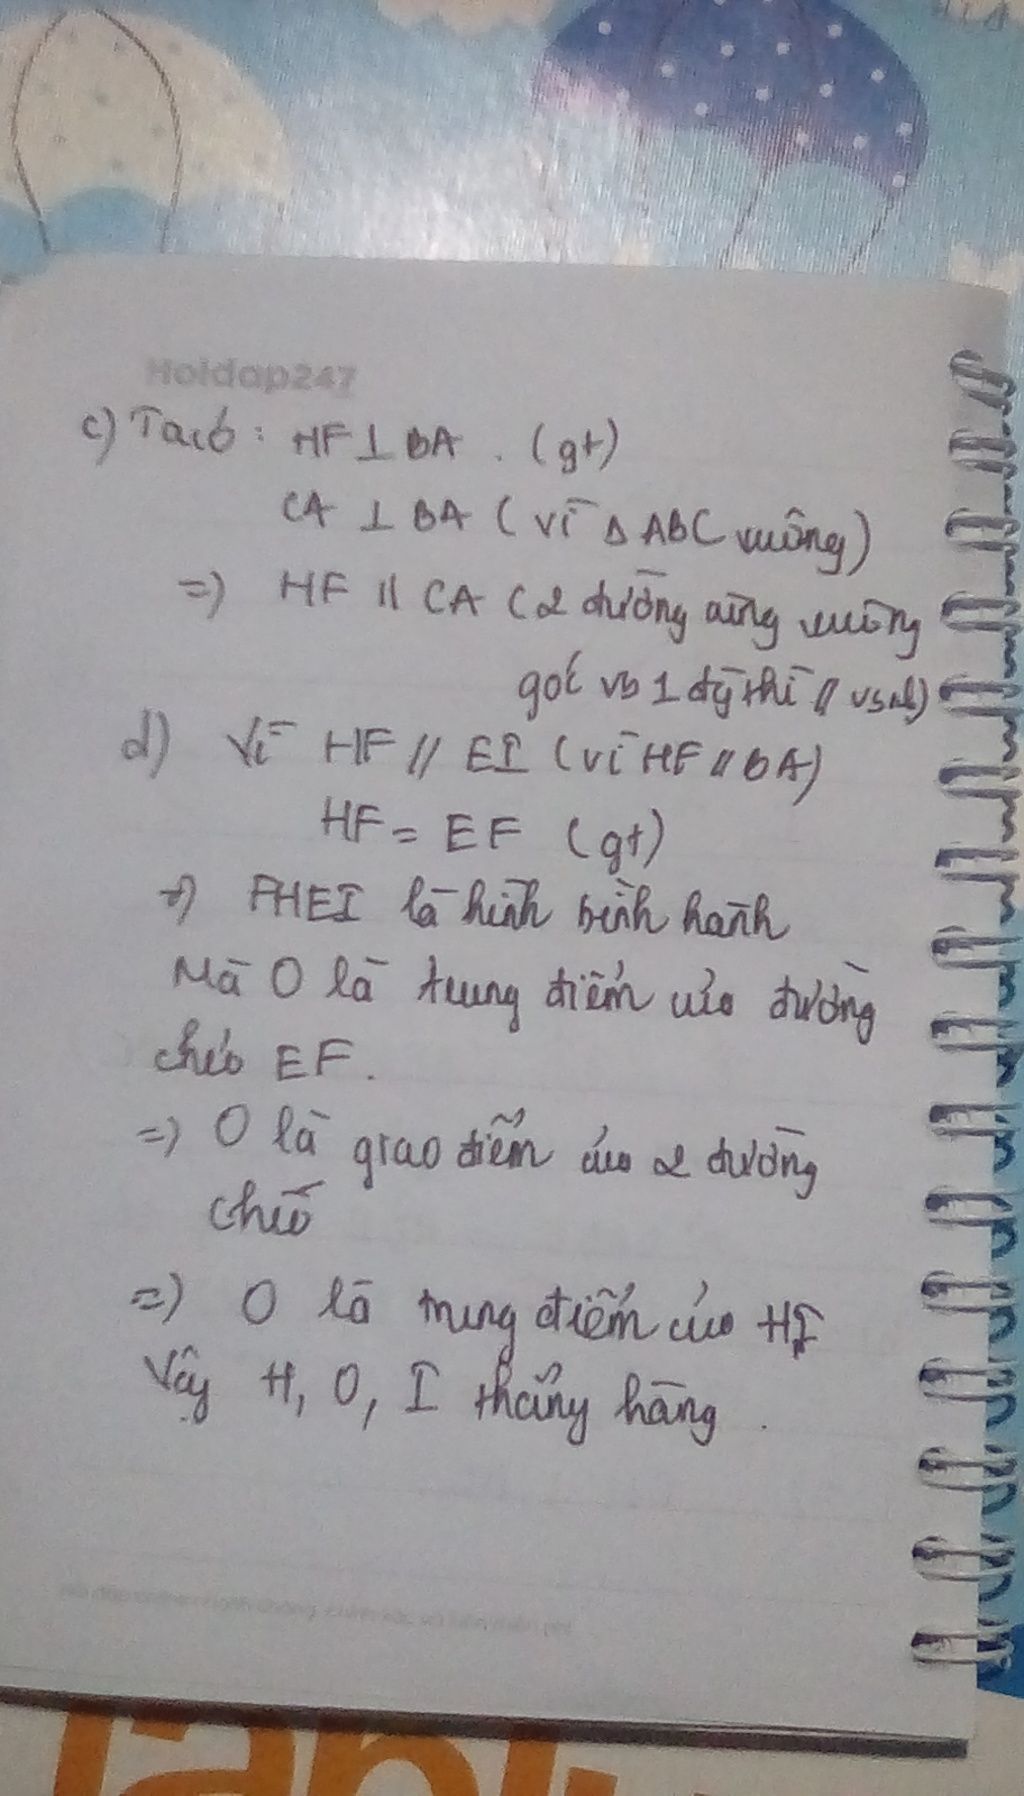 Hoidap247
c) Ta có: HF ⊥ BA. (gt)
CA ⊥ BA (vì Δ ABC vuông)
=) HF // CA (2 đường cùng vuông
góc vs 1 đg thì // vs nh)
d) Vì HF // EI (vì HF // BA)
HF = EF (gt)
=) FHEI là hình bình hành
Mà O là trung điểm của đường
chéo EF.
=) O là giao điểm của 2 đường
chéo
=) O là trung điểm của HI
Vậy H, O, I thẳng hàng.